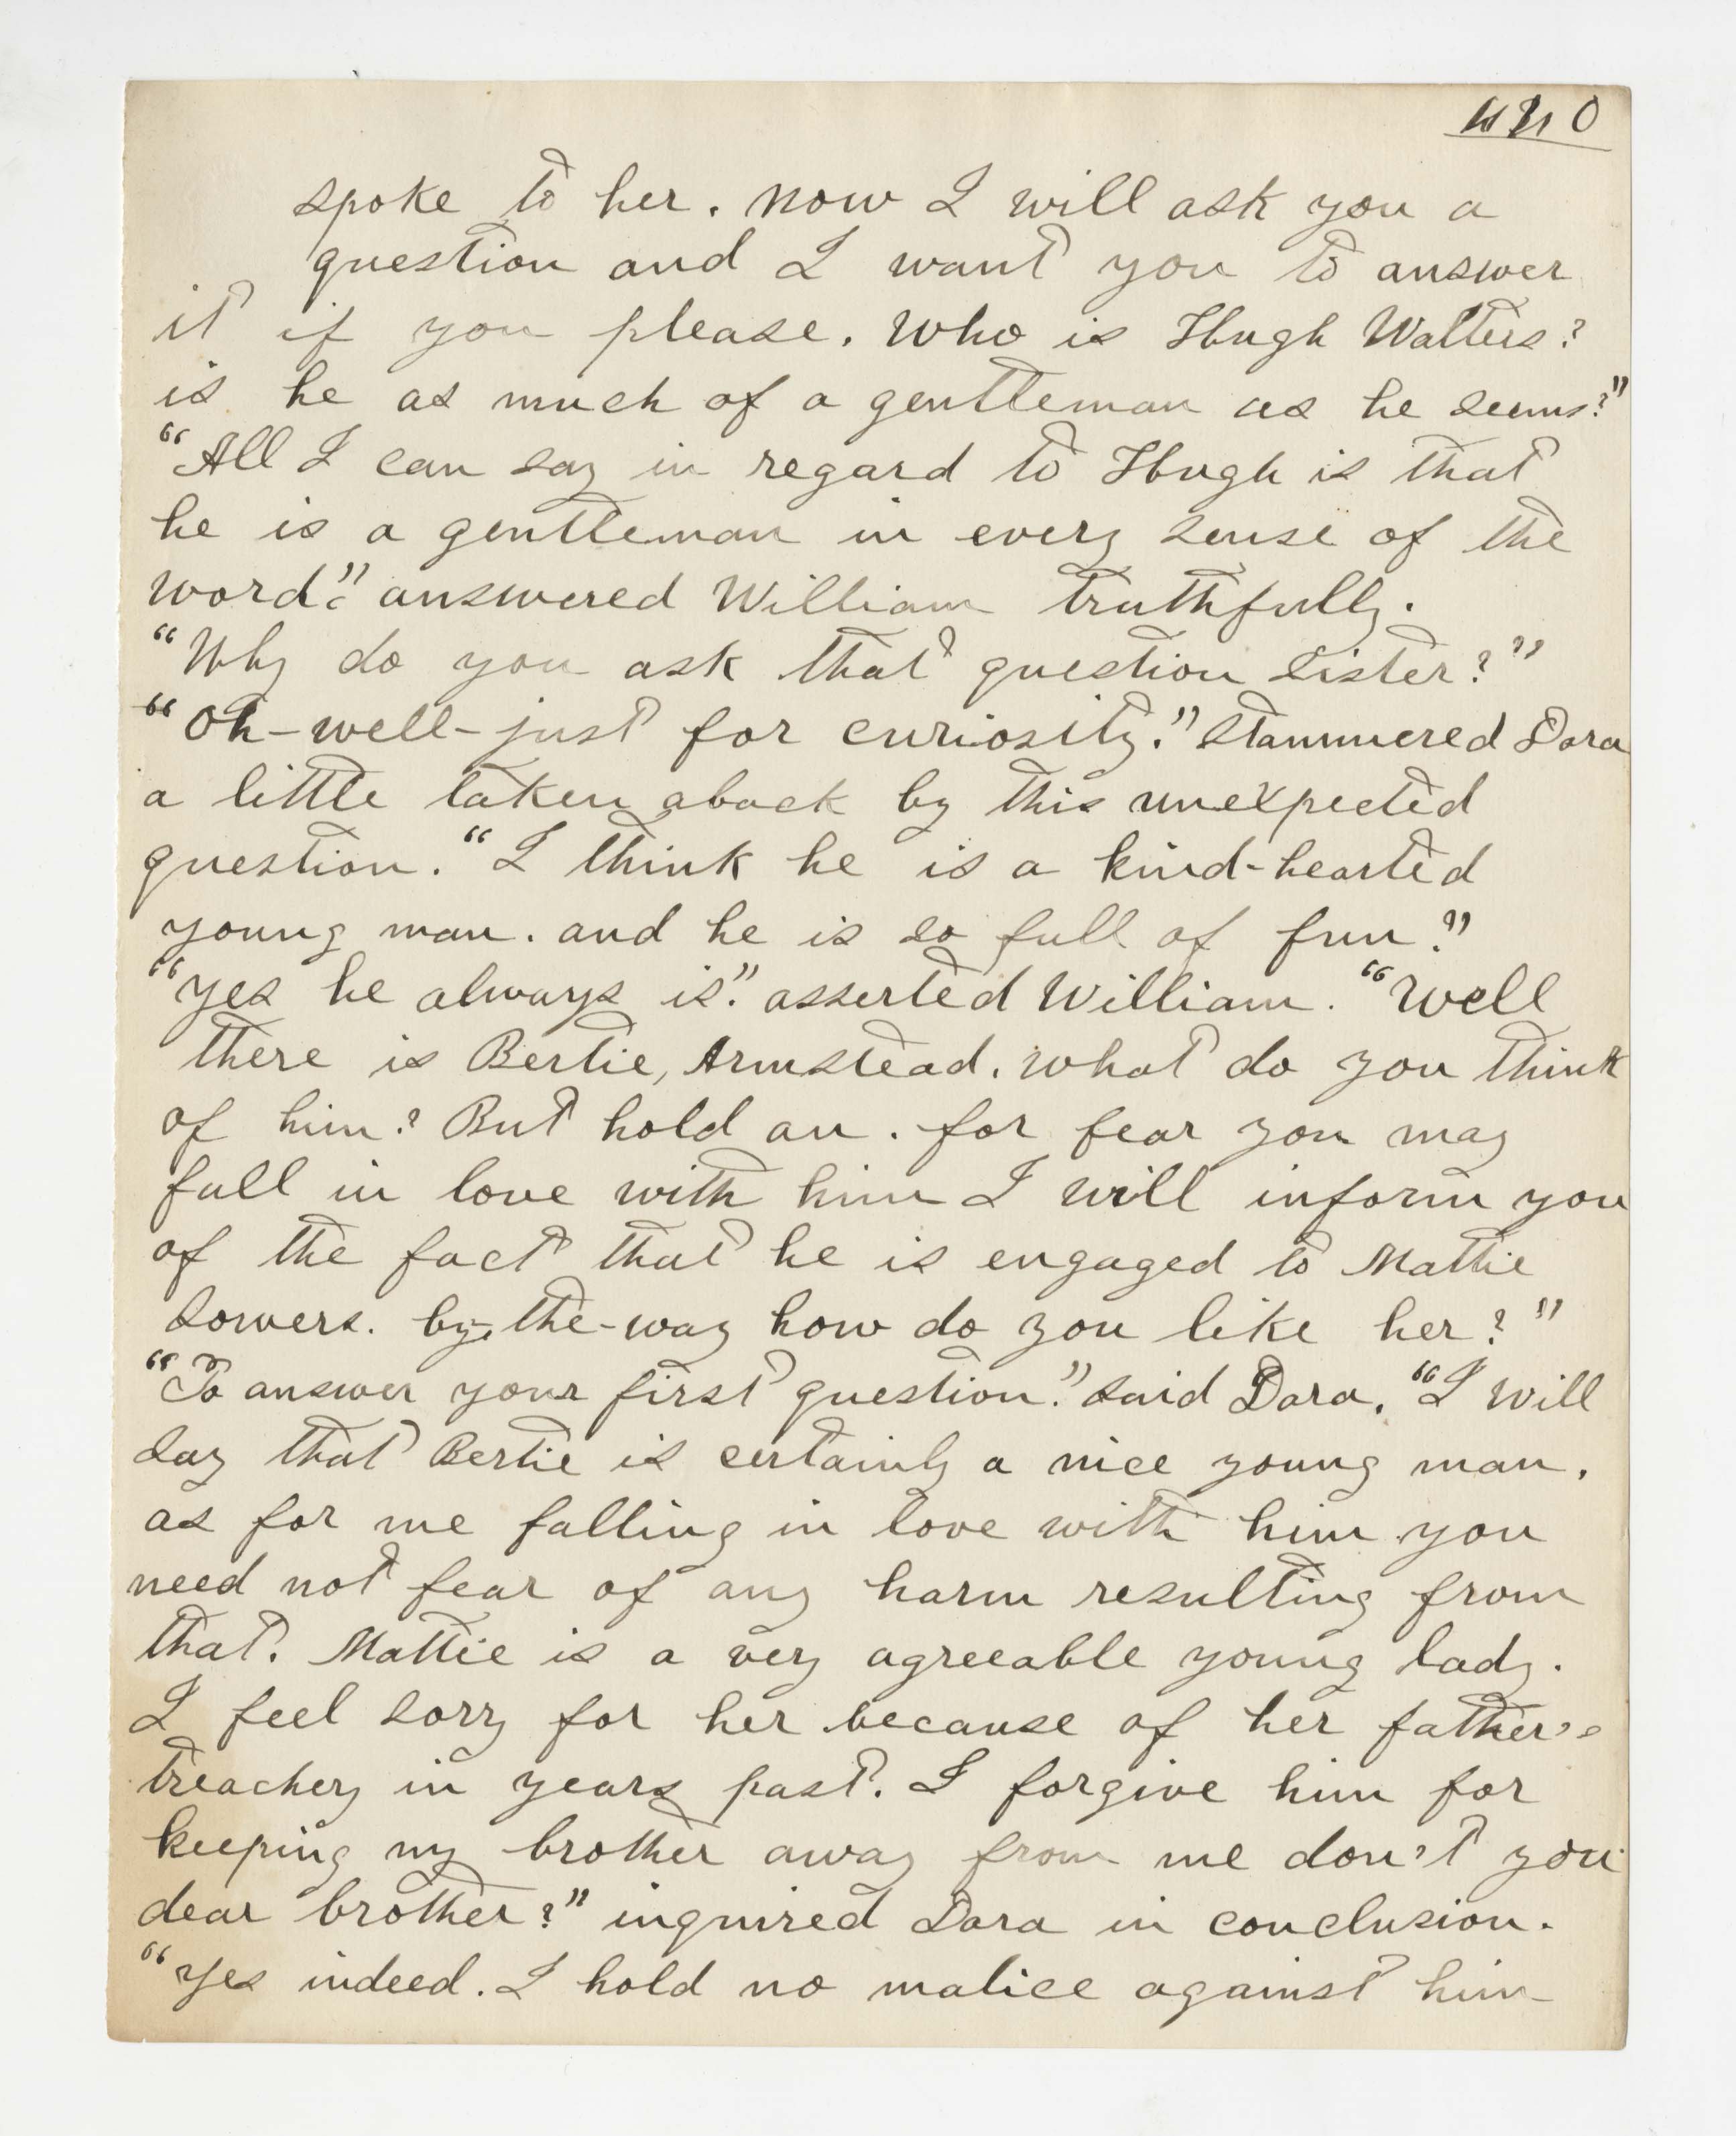 spoke to her. Now I will ask you a
question and I want you to answer
it if you please. Who is Hugh Walters?
is he as much of a gentleman as he seems?"
"All I can say in regard to Hugh is that
he is a gentleman in every sense of the
word." answered William truthfully.
"Why do you ask that question Sister?"
"Oh-well-just for curiosity." Stammered Dora
a little taken aback by this unexpected
question. "I think he is a kind-hearted
young man. and he is so full of fun."
"Yes he always is." asserted William. "Well
there is Bertie, Armstead. What do you think
of him? But hold on. for fear you may
fall in love with him I will inform you
of the fact that he is engaged to Mattie
Sowers. by-the-way how do you like her?"
"To answer your first question." Said Dora. "I will
say that Bertie is certainly a nice young man.
as for me falling in love with him you
need not fear of any harm resulting from
that. Mattie is a very agreeable young lady.
I feel sorry for her because of her father's
treachery in years past. I forgive him for
keeping my brother away from me don't you
dear brother?" inquired Dora in conclusion.
"Yes indeed. I hold no malice against him